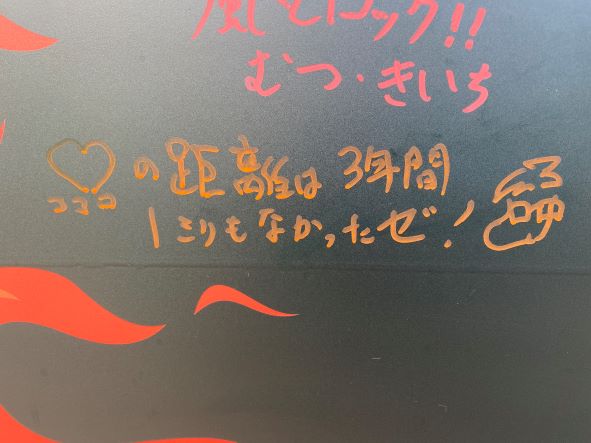 風とロック!!
むつ・きいち
♡の距離は3年間
ココロ
1ミリもなかったぜ!